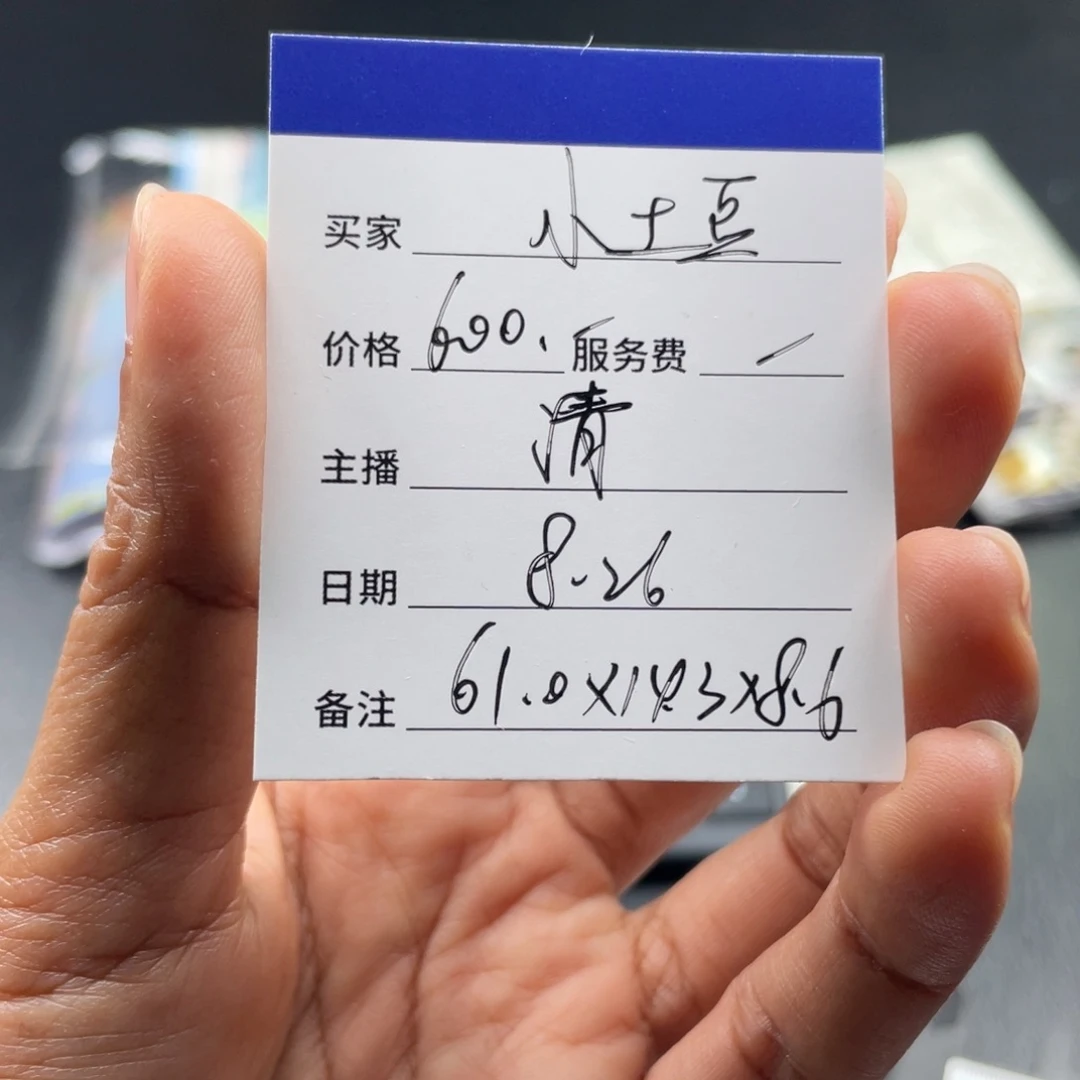 买家 小土豆
价格 600. 服务费 /
主播 清
日期 8.26
备注 61.0×14.3×8.6